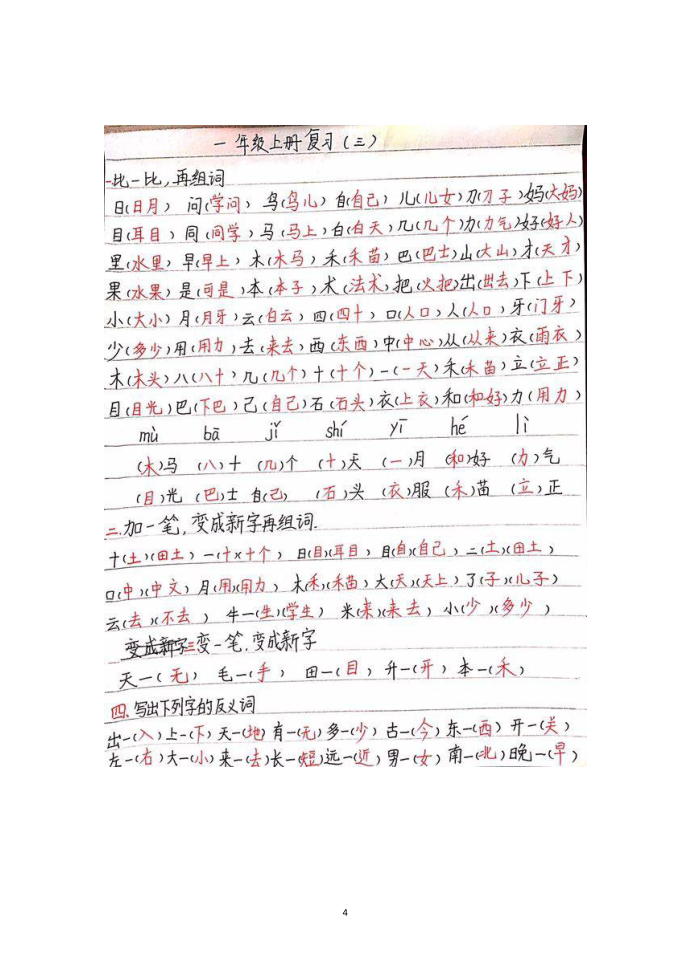 一年级上册复习(三)
一比一比,再组词
日(日月) 问(学问) 鸟(鸟儿) 自(自己) 儿(儿女)刀(刀子)妈(大妈)
目(耳目) 同(同学) 马(马上)白(白天)几(几个)力(力气)好(好人)
里(水里) 早(早上) 木(木马) 禾(禾苗) 巴(巴士)山(大山)才(天才)
果(水果) 是(可是)本(本子) 术(法术)把(火把)出(出去)下(上下)
小(大小) 月(月牙)云(白云) 四(四十) 口(人口)人(人口) 牙(门牙)
少(多少)用(用力) 去(来去) 西(东西)中(中心)从(从来)衣(雨衣)
木(木头)八(八十)几(几个)十(十个)一(一天)禾(禾苗)立(立正)
目(目光)巴(下巴)己(自己)石(石头)衣(上衣)和(和好)力(用力)
mù bā jǐ shí yī hé lì
(木)马 (八)十 (几)个 (十)天 (一)月 (和)好 (力)气
(目)光 (巴)士 自(己) (石)头 (衣)服 (禾)苗 (立)正
二.加一笔,变成新字再组词.
十(土)(田土) 一(十)(十个) 日(目)(耳目) 目(自)(自己) 二(土)(田土)
口(中)(中文) 月(用)(用力) 木(禾)(禾苗) 大(天)(天上) 了(子)(儿子)
云(去)(不去) 牛一(生)(学生) 米(来)(来去) 小(少)(多少)
变成新字三变一笔,变成新字
天一(无) 毛一(手) 田一(目) 升一(开) 本一(禾)
四.写出下列字的反义词
出一(入)上一(下)天一(地)有一(无)多一(少)古一(今)东一(西)开一(关)
左一(右)大一(小)来一(去)长一(短)远一(近)男一(女)南一(北)晚一(早)
4